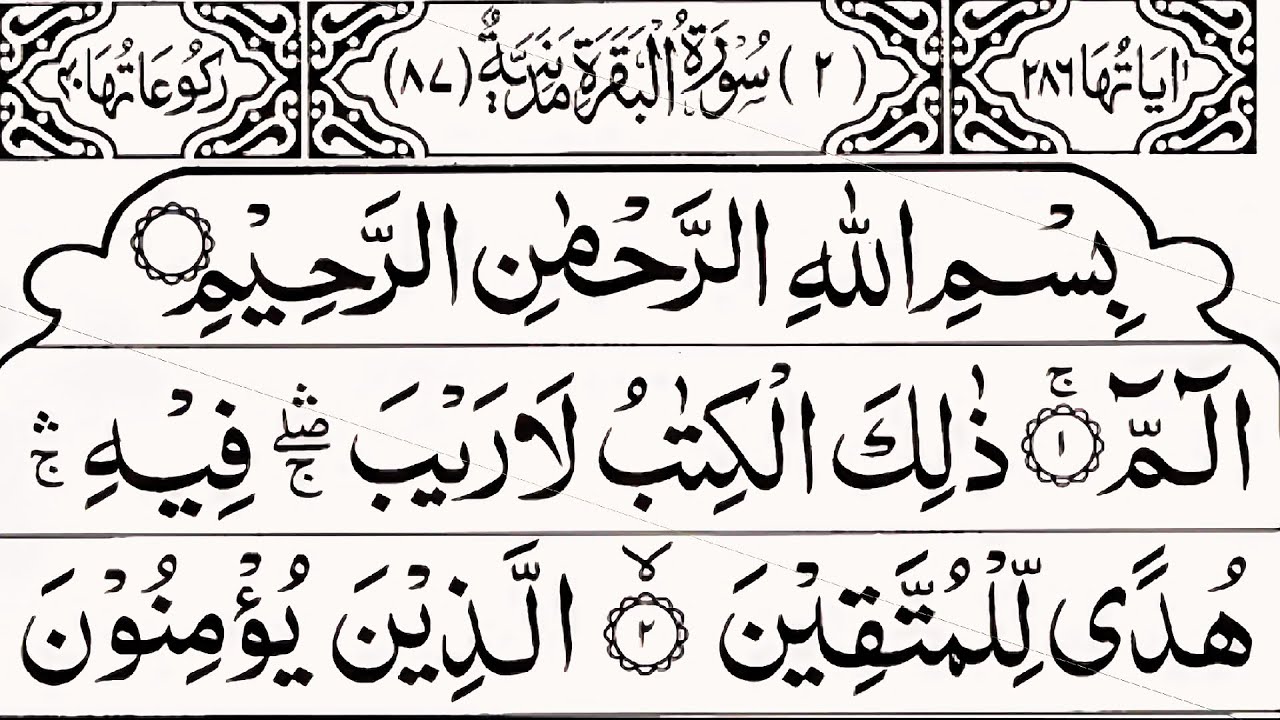 اٰيَاتُهَا ٢٨٦ (٢) سُوْرَةُ الْبَقَرَةِ مَدَنِيَّةٌ (٨٧) رُكُوْعَاتُهَا ٤٠
بِسْمِ اللّٰهِ الرَّحْمٰنِ الرَّحِيْمِ
الٓمّٓ ۚ ١ ذٰلِكَ الْكِتٰبُ لَا رَيْبَ ۛۖۚ فِيْهِ ۛۚ
هُدًى لِّلْمُتَّقِيْنَ ۙ ٢ الَّذِيْنَ يُؤْمِنُوْنَ